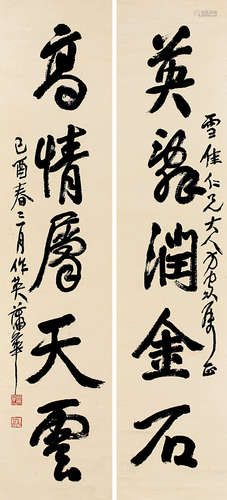 雪佳仁兄大人方家正
英辭潤金石
高情屬天雲
己酉春二月作英蒲華